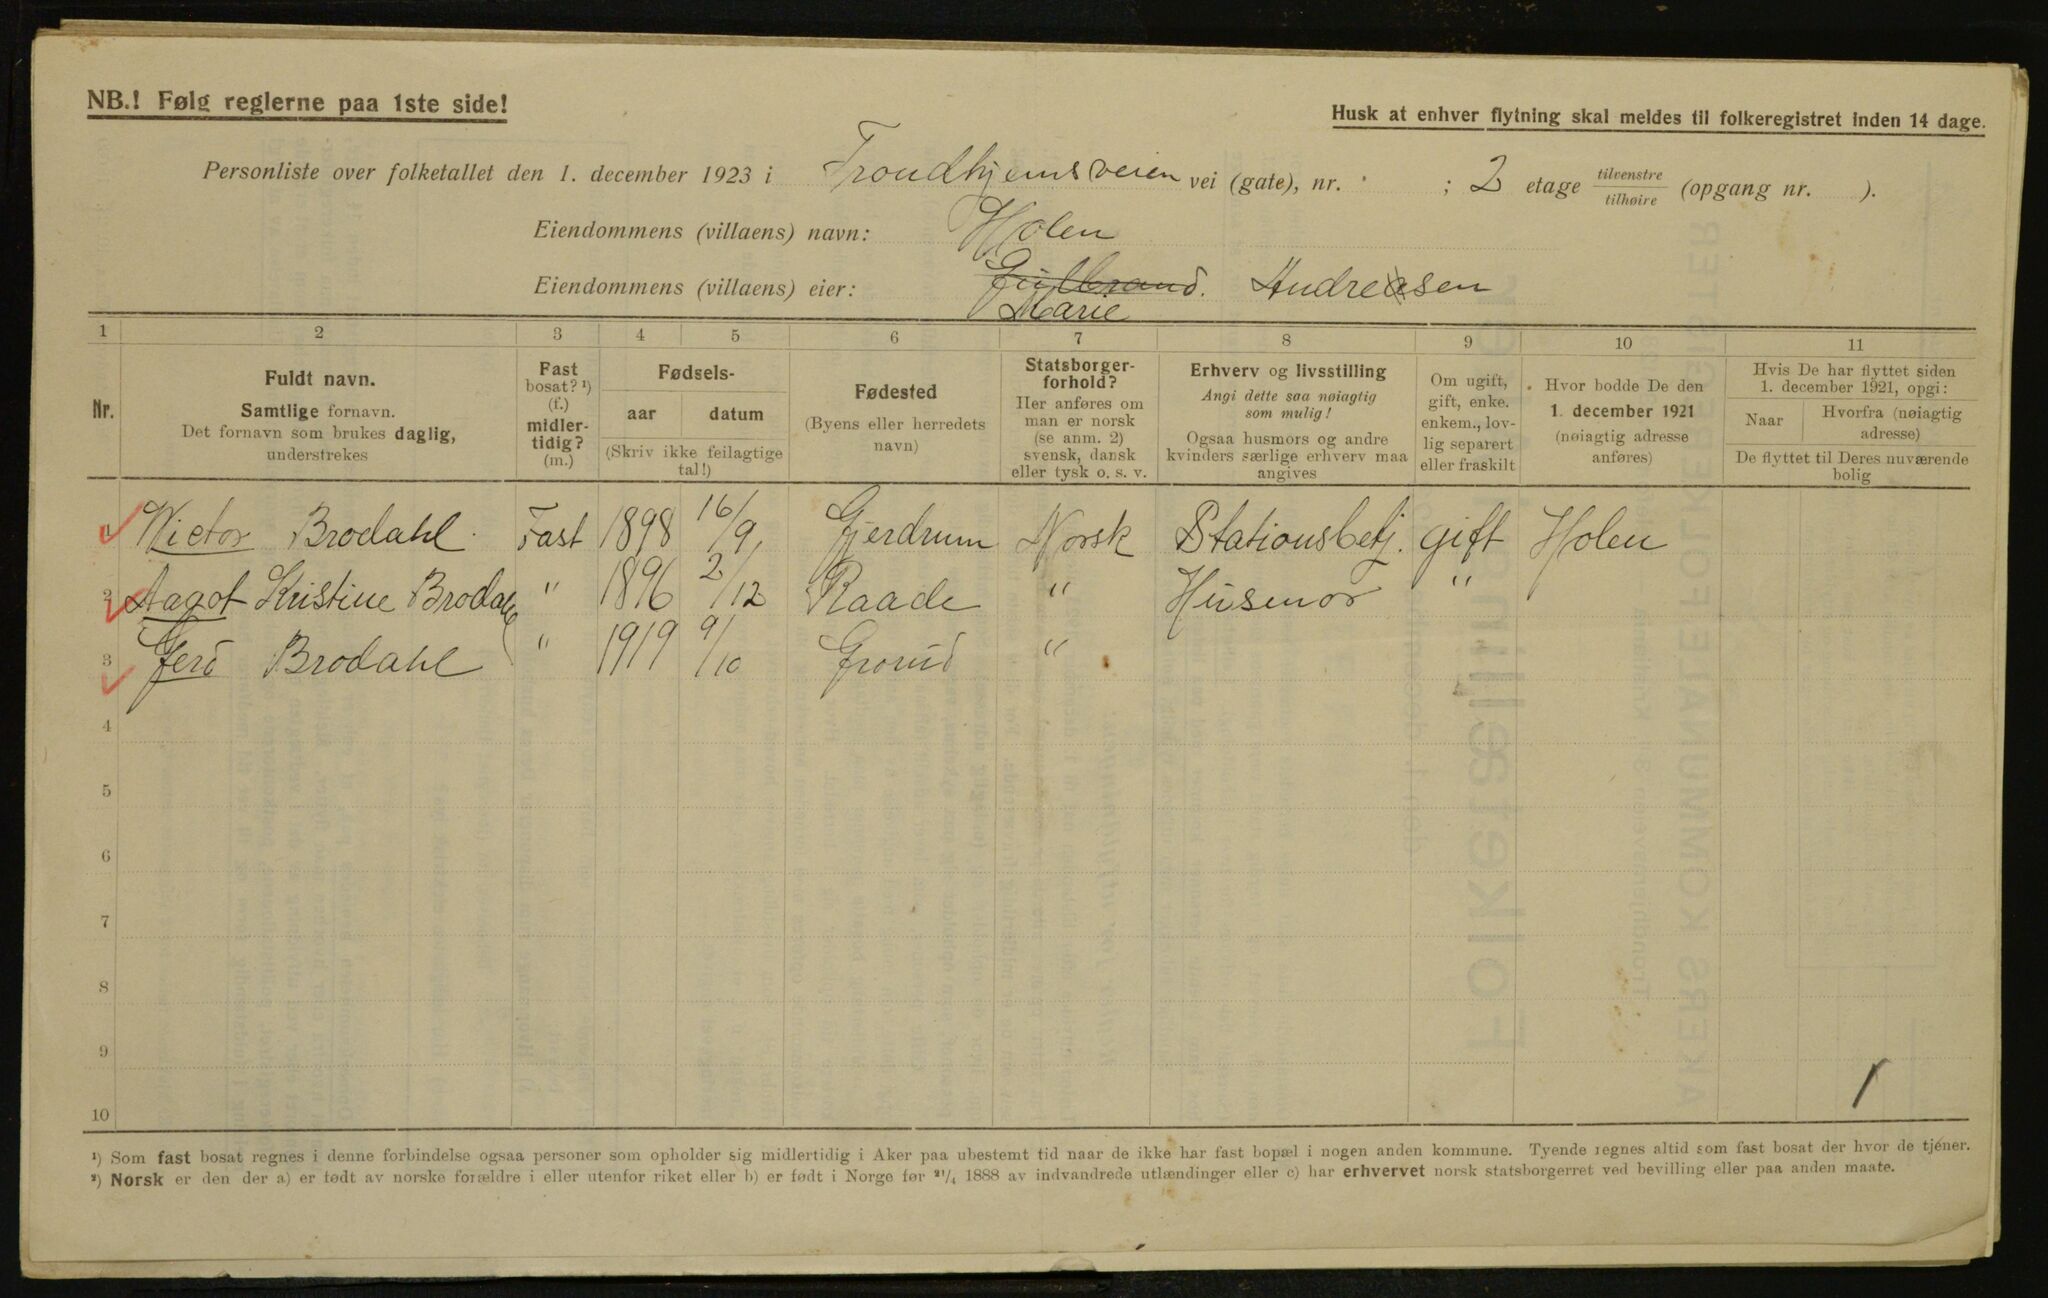 NB.! Følg reglerne paa 1ste side!
Husk at enhver flytning skal meldes til folkeregistret inden 14 dage.
Personliste over folketallet den 1. december 1923 i Trondhjemsveien vei (gate), nr. ; 2 etage tilvenstre/tilhøire (opgang nr. ).
Eiendommens (villaens) navn: Holen
Eiendommens (villaens) eier: Gulbrand. Andreasen
Marie
1 2 3 4 5 6 7 8 9 10 11
Nr.
Fuldt navn.
Samtlige fornavn.
Det fornavn som brukes daglig,
understrekes
Fast
bosat? ¹)
(f.)
midler-
tidig?
(m.)
Fødsels-
aar datum
(Skriv ikke feilagtige
tal!)
Fødested
(Byens eller herredets
navn)
Statsborger-
forhold?
Her anføres om
man er norsk
(se anm. 2)
svensk, dansk
eller tysk o. s. v.
Erhverv og livsstilling
Angi dette saa nøiagtig
som mulig!
Ogsaa husmors og andre
kvinders særlige erhverv maa
angives
Om ugift,
gift, enke.
enkem., lov-
lig separert
eller fraskilt
Hvor bodde De den
1. december 1921
(nøiagtig adresse
anføres)
Hvis De har flyttet siden
1. december 1921, opgi:
Naar Hvorfra (nøiagtig
adresse)
De flyttet til Deres nuværende
bolig
1 Victor Brodahl Fast 1898 16/9 Gjerdrum Norsk Stationsbetj. gift Holen
2 Aagot Kristine Brodahl " 1896 2/12 Raade " Husmor "
3 Gerd Brodahl " 1919 9/10 Grorud "
4
5
6
7
8
9
10
1
¹) Som fast bosat regnes i denne forbindelse ogsaa personer som opholder sig midlertidig i Aker paa ubestemt tid naar de ikke har fast bopæl i nogen anden kommune. Tyende regnes altid som fast bosat der hvor de tjener.
²) Norsk er den der a) er født av norske forældre i eller utenfor riket eller b) er født i Norge før ²¹/₄ 1888 av indvandrede utlændinger eller c) har erhvervet norsk statsborgerret ved bevilling eller paa anden maate.